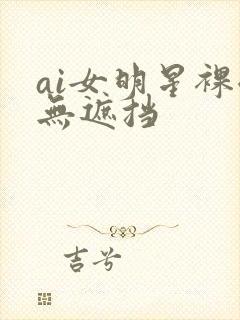 ai女明星裸
無遮挡
吉兮